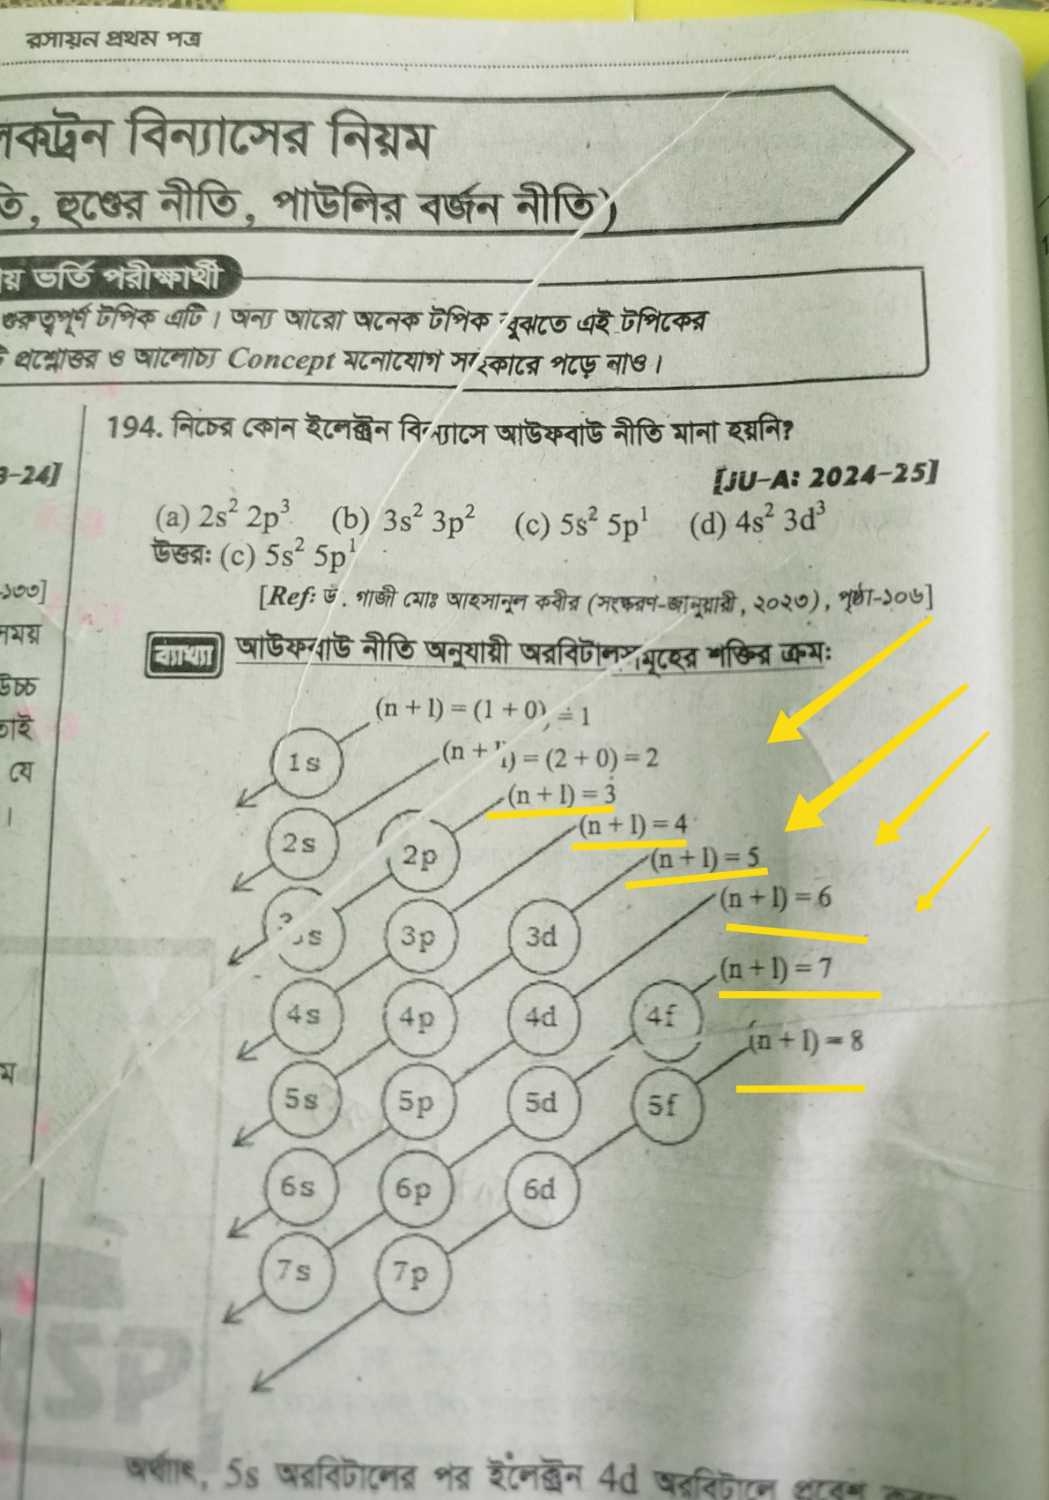 রসায়ন প্রথম পত্র
বিন্যাসের নিয়ম
হুণ্ডের নীতি, পাউলির বর্জন নীতি)
ভর্তি পরীক্ষার্থী
গুরুত্বপূর্ণ টপিক এটি। অন্য আরো অনেক টপিক বুঝতে এই টপিকের
প্রশ্নোত্তর ও আলোচ্য Concept মনোযোগ সহকারে পড়ে নাও।
194. নিচের কোন ইলেক্ট্রন বিন্যাসে আউফবাউ নীতি মানা হয়নি?
[JU-A: 2024-25]
(a) 2s² 2p³ (b) 3s² 3p² (c) 5s² 5p¹ (d) 4s² 3d³
উত্তর: (c) 5s² 5p¹
[Ref: ড. গাজী মোঃ আহসানুল কবীর (সংস্করণ-জানুয়ারী, ২০২৩), পৃষ্ঠা-১০৬]
ব্যাখ্যা আউফবাউ নীতি অনুযায়ী অরবিটালসমূহের শক্তির ক্রম:
(n + l) = (1 + 0) = 1
1s
(n + l) = (2 + 0) = 2
(n + l) = 3
(n + l) = 4
2s 2p
(n + l) = 5
(n + l) = 6
3s 3p 3d
(n + l) = 7
4s 4p 4d 4f
(n + l) = 8
5s 5p 5d 5f
6s 6p 6d
7s 7p
অর্থাৎ, 5s অরবিটালের পর ইলেক্ট্রন 4d অরবিটালে প্রবেশ
3-24]
-১৩৩]
সময়
উচ্চ
তাই
যে
।
ম